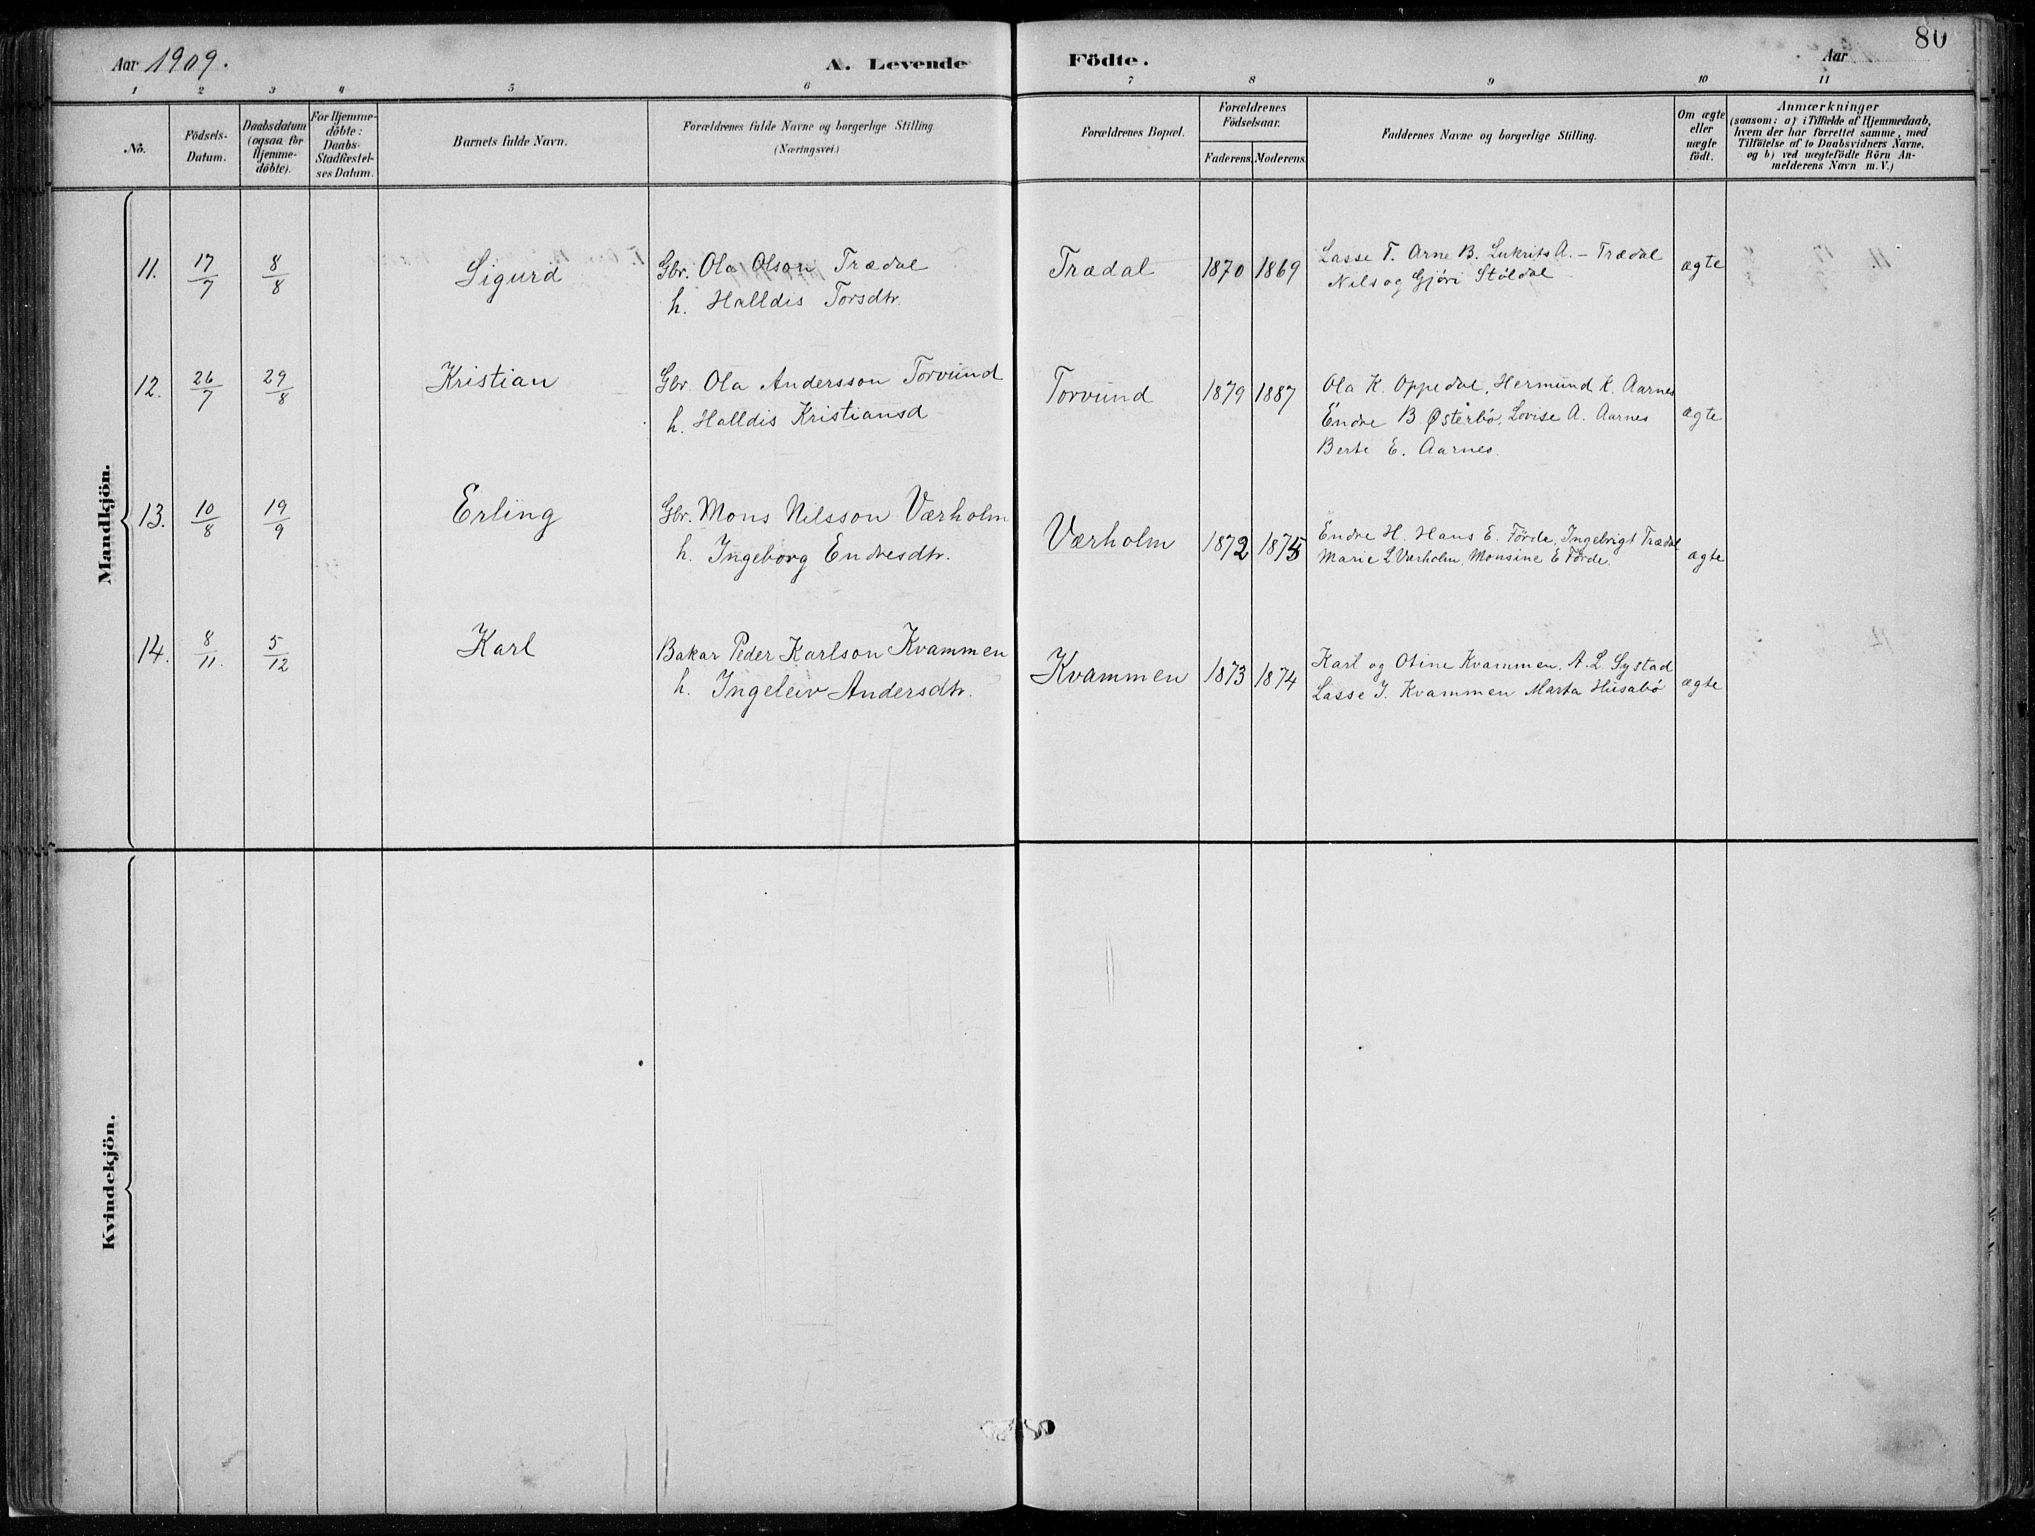 80
Aar 1909. A. Levende Födte. Aar
1 2 3 4 5 6 7 8 9 10 11
No.
Födsels-
Datum.
Daabsdatum
(ogsaa for
Hjemme-
döbte).
For Hjemme-
döbte:
Daabs-
Stadfæstel-
ses Datum.
Barnets fulde Navn.
Forældrenes fulde Navne og borgerlige Stilling
(Næringsvei.)
Forældrenes Bopæl.
Forældrenes
Födselsaar.
Faderens. Moderens.
Faddernes Navne og borgerlige Stilling.
Om ægte
eller
uægte
födt.
Anmærkninger
(saasom: a) i Tilfælde af Hjemmedaab,
hvem der har forrettet samme, med
Tilföielse af to Daabsvidners Navne,
og b) ved uægtefödte Börn An-
melderens Navn m. V.)
Mandkjön.
11. 17/7 8/8 Sigurd Gbr. Ola Olson Trædal
h. Halldis Torsdtr.
Trædal 1870 1869
Lasse T. Arne B. Lukrits A. – Trædal
Nils og Gjöri Stöldal
ægte
12. 26/7 29/8 Kristian Gbr. Ola Andersson Torvund
h. Halldis Kristiansd
Torvund 1879 1887
Ola K. Oppedal, Hermund K. Aarnes
Endre B. Østerbø, Lovise A. Aarnes
Berte E. Aarnes.
ægte
13. 10/8 19/9 Erling Gbr. Mons Nilsson Værholm
h. Ingeborg Endresdtr.
Værholm 1872 1875
Endre H. Hans E. Förde, Ingebrigt Trædal
Marie L Værholm, Monsine E Förde.
ægte
14. 8/11. 5/12 Karl Bakar Peder Karlson Kvammen
h. Ingeleiv Andersdtr.
Kvammen 1873 1874
Karl og Otine Kvammen, A. L Systad
Lasse I. Kvammen Marta Husabö
ægte
Kvindekjön.